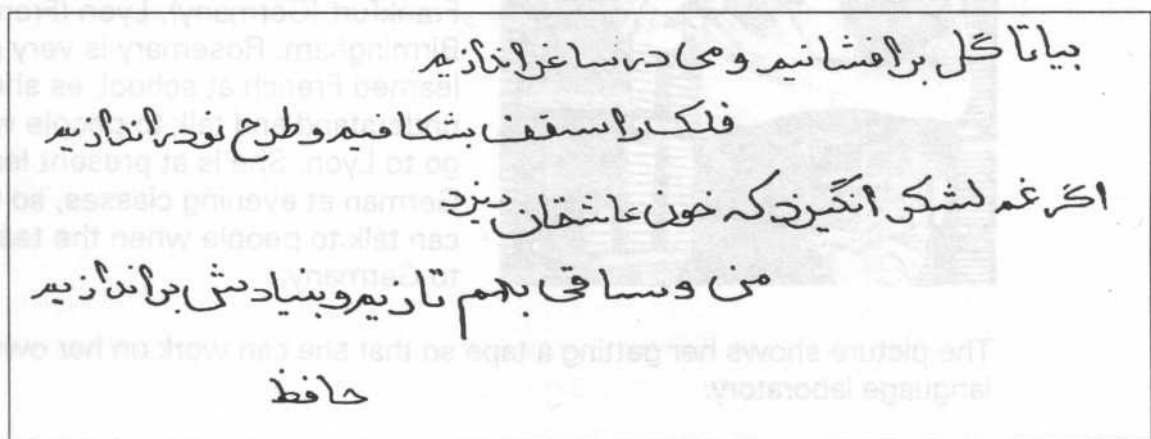 بیا تا گل برافشانیم و می در ساغر اندازیم
فلک را سقف بشکافیم و طرح نو در اندازیم
اگر غم لشکر انگیزد که خون عاشقان ریزد
من و ساقی بهم تازیم و بنیادش براندازیم
حافظ